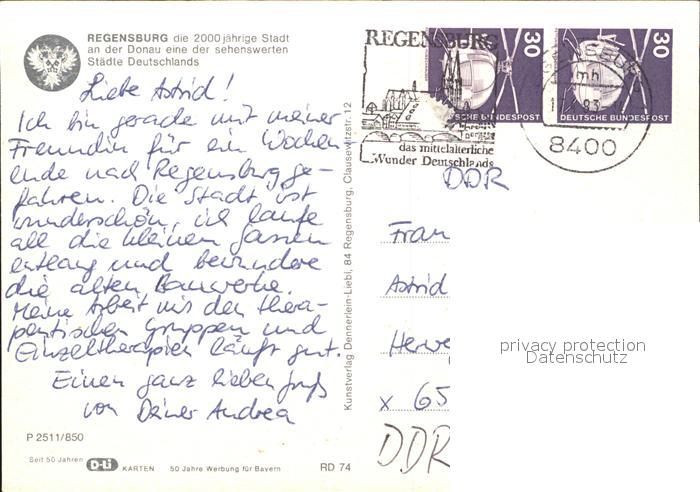 REGENSBURG die 2000jährige Stadt
an der Donau eine der sehenswerten
Städte Deutschlands
Liebe Astrid!
Ich bin gerade mit meiner
Freundin für ein Wochen
ende nach Regensburg ge-
fahren. Die Stadt ist
wunderschön, ich laufe
all die kleinen Gassen
entlang und bewundere
die alten Bauwerke.
Meine Arbeit mit den thera-
peutischen Gruppen und
Einzeltherapien läuft gut.
Einen ganz lieben Gruß
von Deiner Andrea
P 2511/850
Seit 50 Jahren D-Li KARTEN 50 Jahre Werbung für Bayern RD 74
Kunstverlag Dennerlein-Liebl, 84 Regensburg, Clausewitzstr. 12
REGENSBURG
das mittelalterliche
Wunder Deutschlands
30
DEUTSCHE BUNDESPOST
30
DEUTSCHE BUNDESPOST
mh
83
8400
DDR
Frau
Astrid
Herwe
x 65
DDR
privacy protection
Datenschutz